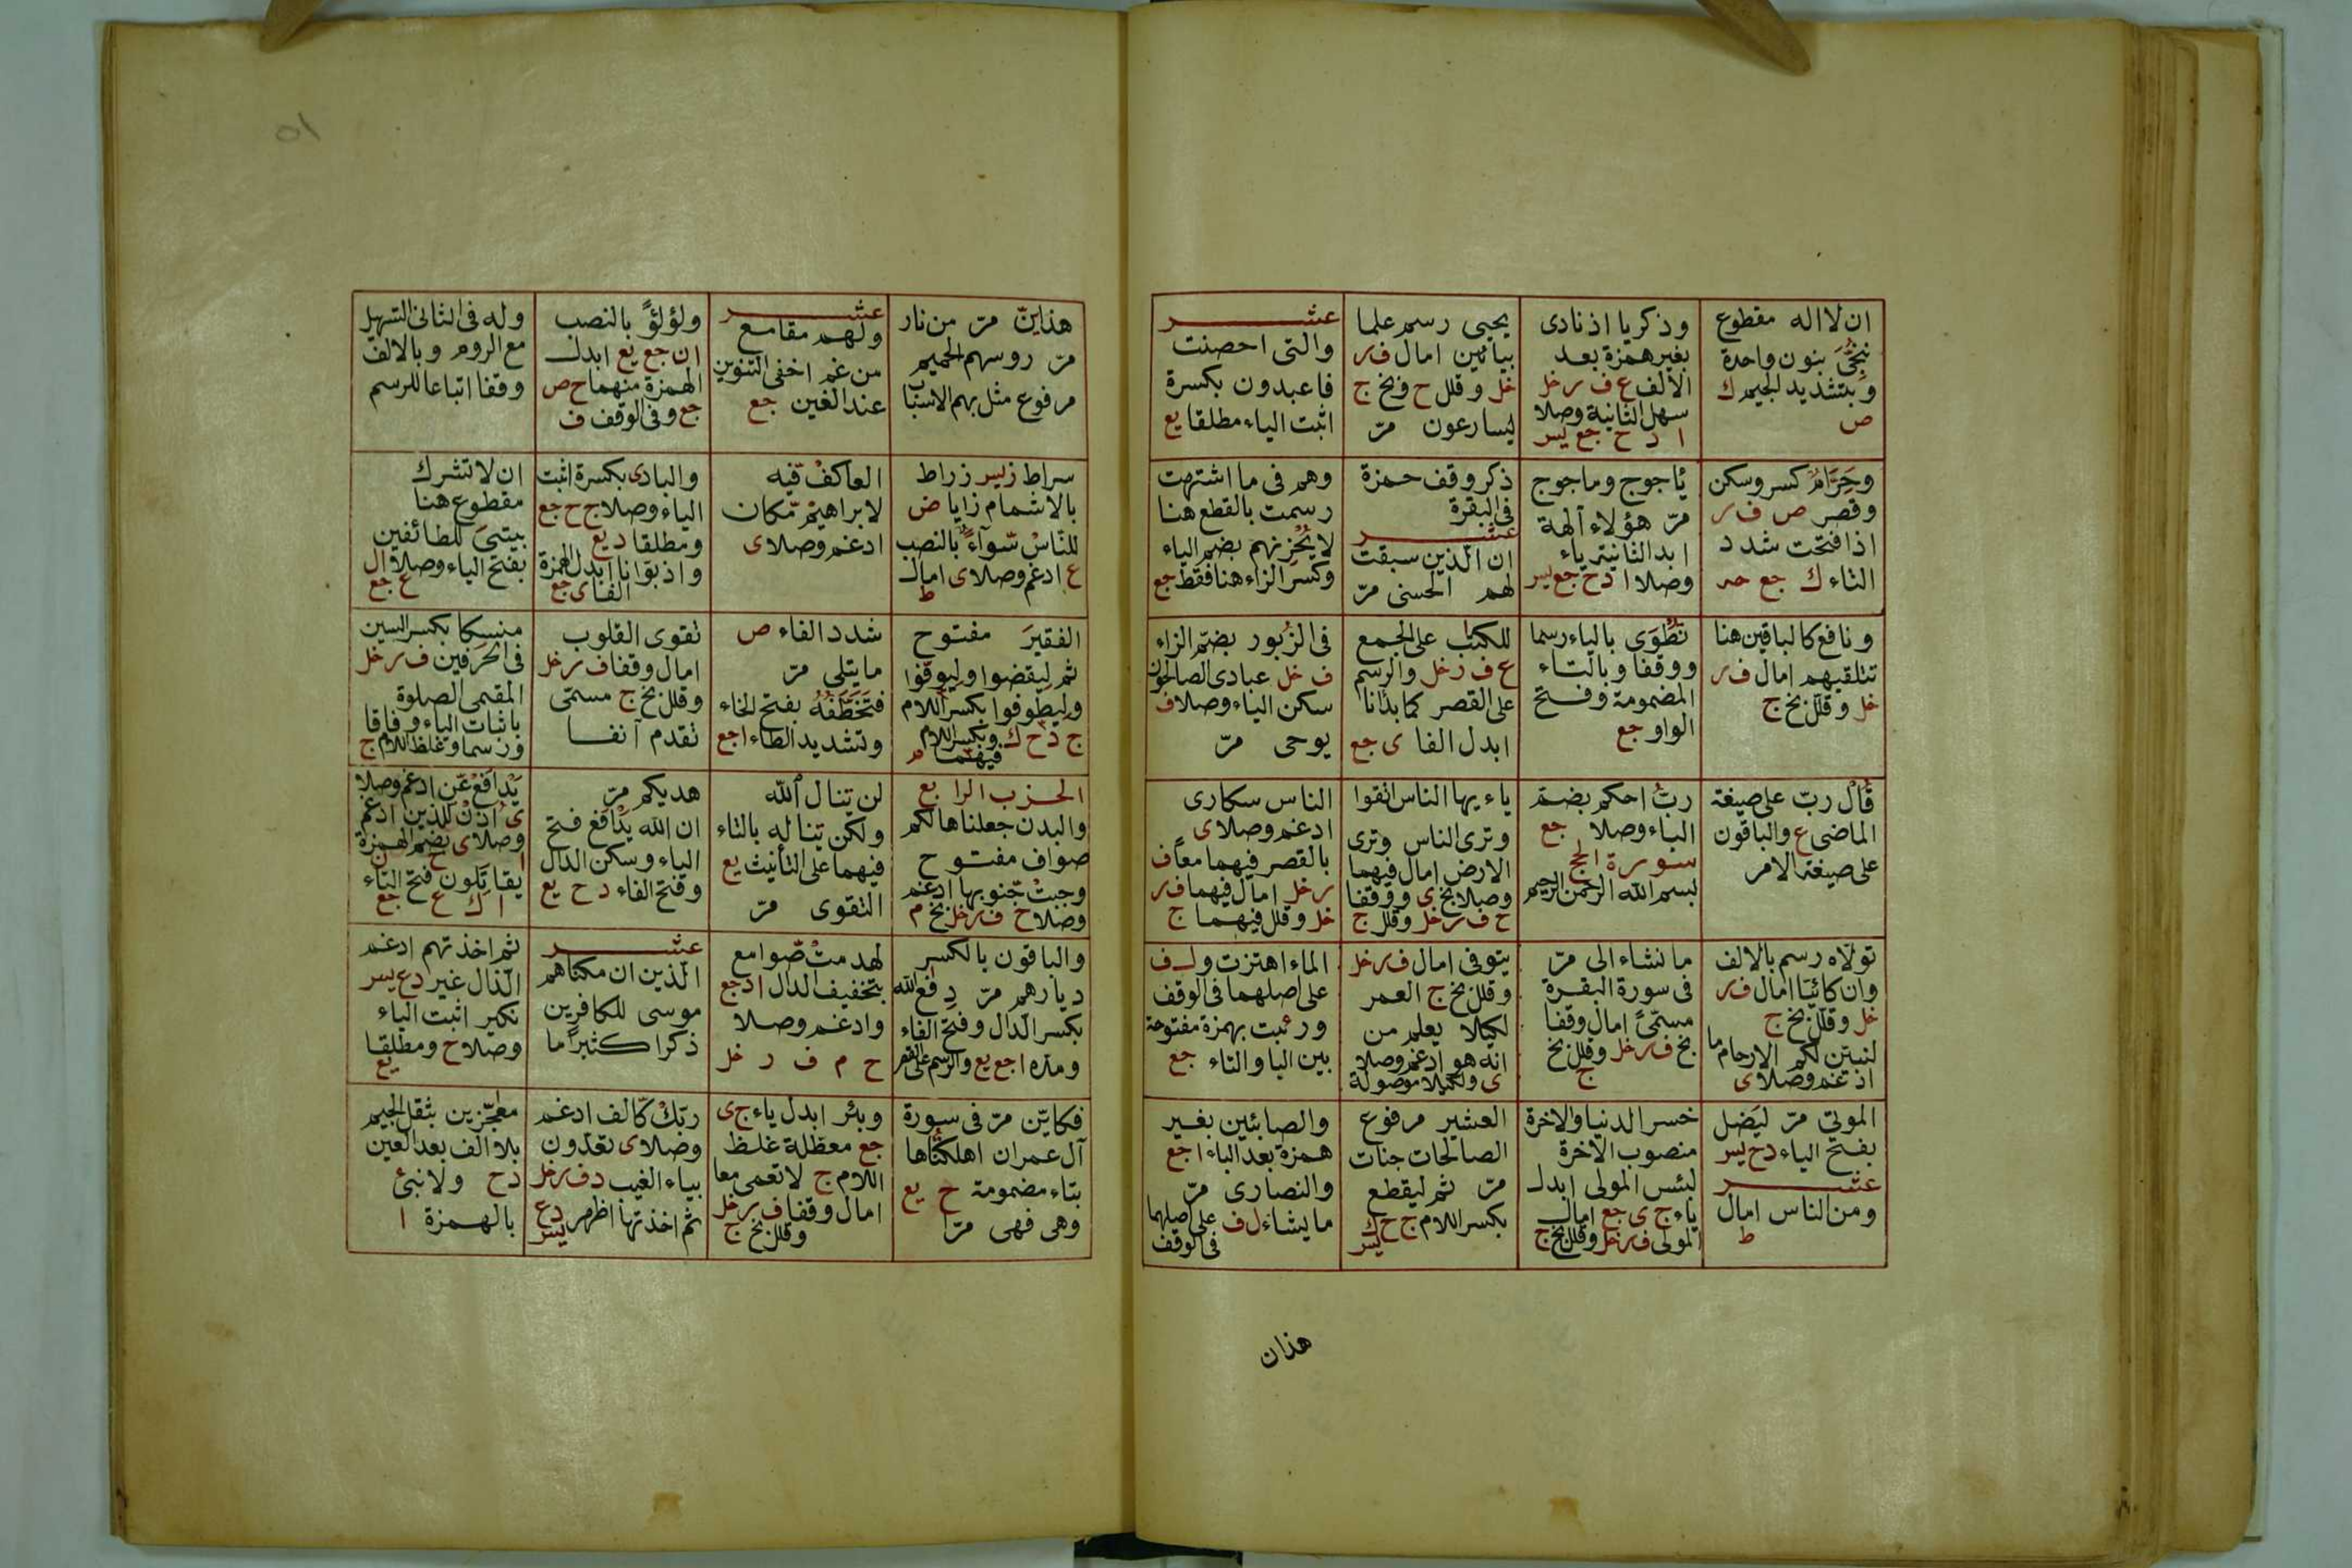 ان لا اله مقطوع
نُجِّى بنون واحدة
وبتشديد الجيم ك
ص
وذكريا اذ نادى
بغير همزة بعد
الألف ع ف ر خل
سهل الثانية وصلا
ا د ح جع يس
يحيى رسم علما
بيائين امال ف ر
خل وقلل ح وبخ ج
ليسارعون مرّ
عشر
والتى احصنت
فاعبدون بكسرة
اثبت الياء مطلقا يع
وحِرْمٌ كسر وسكن
وقصر ص ف ر
اذا فتحت شدد
التاء ك جع
يأجوج ومأجوج
مرّ هؤلاء آلهة
ابد الثانية ياء
وصلا ا د ح جع يس
ذكر وقف حمزة
فى البقرة
عشر
ان الذين سبقت
لهم الحسنى مرّ
وهم فى ما اشتهت
رسمت بالقطع هنا
لا يُحْزِنهم بضم الياء
وكسر الزاء هنا فقط جع
ونافع كالباقين هنا
تتلقيهم امال ف ر
خل وقلل بخ ج
تُطْوَى بالياء رسما
ووقفا وبالتاء
المضمومة وفتح
الواو جع
للكتب على الجمع
ع ف ر خل والرسم
على القصر كما بدأنا
ابدل الفا ى جع
فى الزبور بضم الزاء
ف خل عبادى الصالحون
سكن الياء وصلا ف
يوحى مرّ
قَالَ ربّ على صيغة
الماضى ع والباقون
على صيغة الامر
ربُّ احكم بضم
الباء وصلا جع
سورة الحج
بسم الله الرحمن الرحيم
ياءيها الناس اتقوا
وترى الناس وترى
الارض امال فيهما
وصلا بخ ى ووقفا
ح ف ر خل وقلل ج
الناس سكارى
ادغم وصلا ى
بالقصر فيهما معا ف
ر خل امال فيهما ف ر
خل وقلل فيهما ج
تولاه رسم بالالف
وان كان يائيا امال ف ر
خل وقلل بخ ج
لنبيّن لكم الارحام ما
ادغم وصلا ى
ما نشاء الى مرّ
فى سورة البقرة
مسمّى امال وقفا
بخ ف ر خل وقلل بخ
ج
يتوفى امال ف ر خل
وقلل بخ ج العمر
لكيلا يعلم من
انه هو ادغم وصلا
ى ولكيلا موصولة
الماء اهتزت ول ف
على اصلهما فى الوقف
وربئت بهمزة مفتوحة
بين البا والتاء جع
الموتى مرّ ليَضل
بفتح الياء د ح يس
عشر
ومن الناس امال
ط
خسر الدنيا والاخرة
منصوب الاخرة
لبئس المولى ابدل
ياء ج ى جع امال
المولى ف ر خل وقلل بخ ج
العشير مرفوع
الصالحات جنات
مرّ ثم ليقطع
بكسر اللام ج ح ك
يس
والصابئين بغير
همزة بعد الباء ا جع
والنصارى مرّ
ما يشاء ل ف على اصلهما
فى الوقف
هذان
هذانِّ مرّ من نار
مرّ روسهم الحميم
مرفوع مثل بهم الاسباب
عشر
ولهم مقامع
من غم اخفى التنوين
عند الغين جع
ولؤلؤً بالنصب
ا ن جع يع ابدل
الهمزة منهما ح ص
جع وفى الوقف ف
وله فى الثانى التسهيل
مع الروم وبالالف
وقفا اتباعا للرسم
سراط ز يس زراط
بالاشمام زايا ض
للنّاسْ سّوآءً بالنصب
ع ادغم وصلا ى امال
ط
العاكفْ فّيه
لابراهيمْ مّكان
ادغم وصلا ى
والبادى بكسرة اثبت
الياء وصلا ج ح جع
ومطلقا د يع
واذ بوّانا ابدل الهمزة
الفا ى جع
ان لا تشرك
مقطوع هنا
بيتىَ للطائفين
بفتح الياء وصلا ا ل
ع جع
الفقيرَ مفتوح
ثم لِيقضوا ولِيوفوا
ولِيطوفوا بكسر اللام
ج د ح ك وبكسر اللام
فيهما م
شدد الفاء ص
ما يتلى مرّ
فتَخَطَّفُهُ بفتح الخاء
وتشديد الطاء ا جع
تقوى القلوب
امال وقفا ف ر خل
وقلل بخ ج مسمّى
تقدم آنفا
منسِكا بكسر السين
فى الحرفين ف ر خل
المقيمى الصلوة
باثبات الياء وفاقا
ورسما وغلظ اللام ج
الحزب الرابع
والبدن جعلناها لكم
صواف مفتوح
وجبتْ جّنوبها ادغم
وصلا ح ف ر خل بخ م
لن تنال الله
ولكن تناله بالتاء
فيهما على التأنيث يع
التقوى مرّ
هديكم مرّ
ان الله يَدْفَع فتح
الياء وسكن الدال
وفتح الفاء د ح يع
يُدافعْ عّن ادغم وصلا
ى اُذنْ لّلذين ادغم
وصلا ى بضم الهمزة
ا ح ن
يقاتَلون فتح التاء
ا ك ع جع
والباقون بالكسر
ديارهم مرّ دِفع الله
بكسر الدال وفتح الفاء
ومدّه ا جع يع والرسم على القصر
لهدمتْ صّوامع
بتخفيف الدال ا د جع
وادغم وصلا
ح م ف ر خل
عشر
الّذين ان مكناهم
موسى للكافرين
ذكرا كثيرًا ما
ثم اخذتهم ادغم
الذال غير د ع يس
نكير اثبت الياء
وصلا ج ومطلقا
يع
فكايّن مرّ فى سورة
آل عمران اهلكتُها
بتاء مضمومة ح يع
وهى فهى مرّا
وبئر ابدل ياء ج ى
جع معطلة غلظ
اللام ج لا تعمى معا
امال وقفا ف ر خل
وقلل بخ ج
ربّكْ كّالف ادغم
وصلا ى تعدّون
بياء الغيب د ف ر خل
ثم اخذتها اظهر د ع
يس
معجّزين بثقل الجيم
بلا الف بعد العين
د ح ولا نبئ
بالهمزة ا